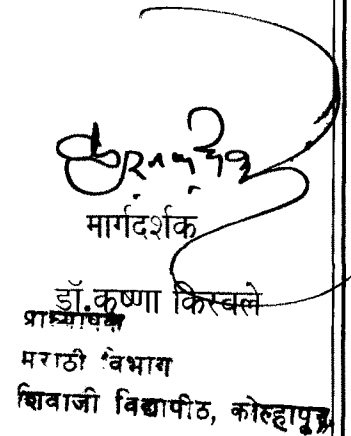 मार्गदर्शक
डॉ.कृष्णा किरवले
प्राध्यापक
मराठी विभाग
शिवाजी विद्यापीठ, कोल्हापूर.